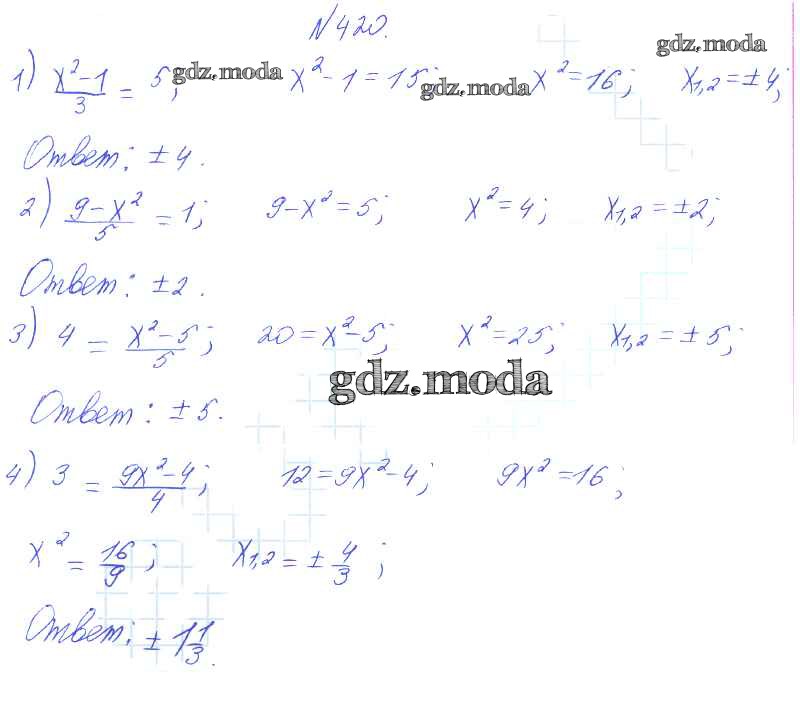 №420.
gdz.moda
1) x²-1/3 = 5; gdz.moda x²-1=15; gdz.moda x²=16; x₁,₂=±4;
Ответ: ±4.
2) 9-x²/5 = 1; 9-x²=5; x²=4; x₁,₂=±2;
Ответ: ±2.
3) 4 = x²-5/5; 20=x²-5; x²=25; x₁,₂=±5;
gdz.moda
Ответ: ±5.
4) 3 = 9x²-4/4; 12=9x²-4; 9x²=16;
x² = 16/9; x₁,₂ = ± 4/3;
Ответ: ± 1 1/3.